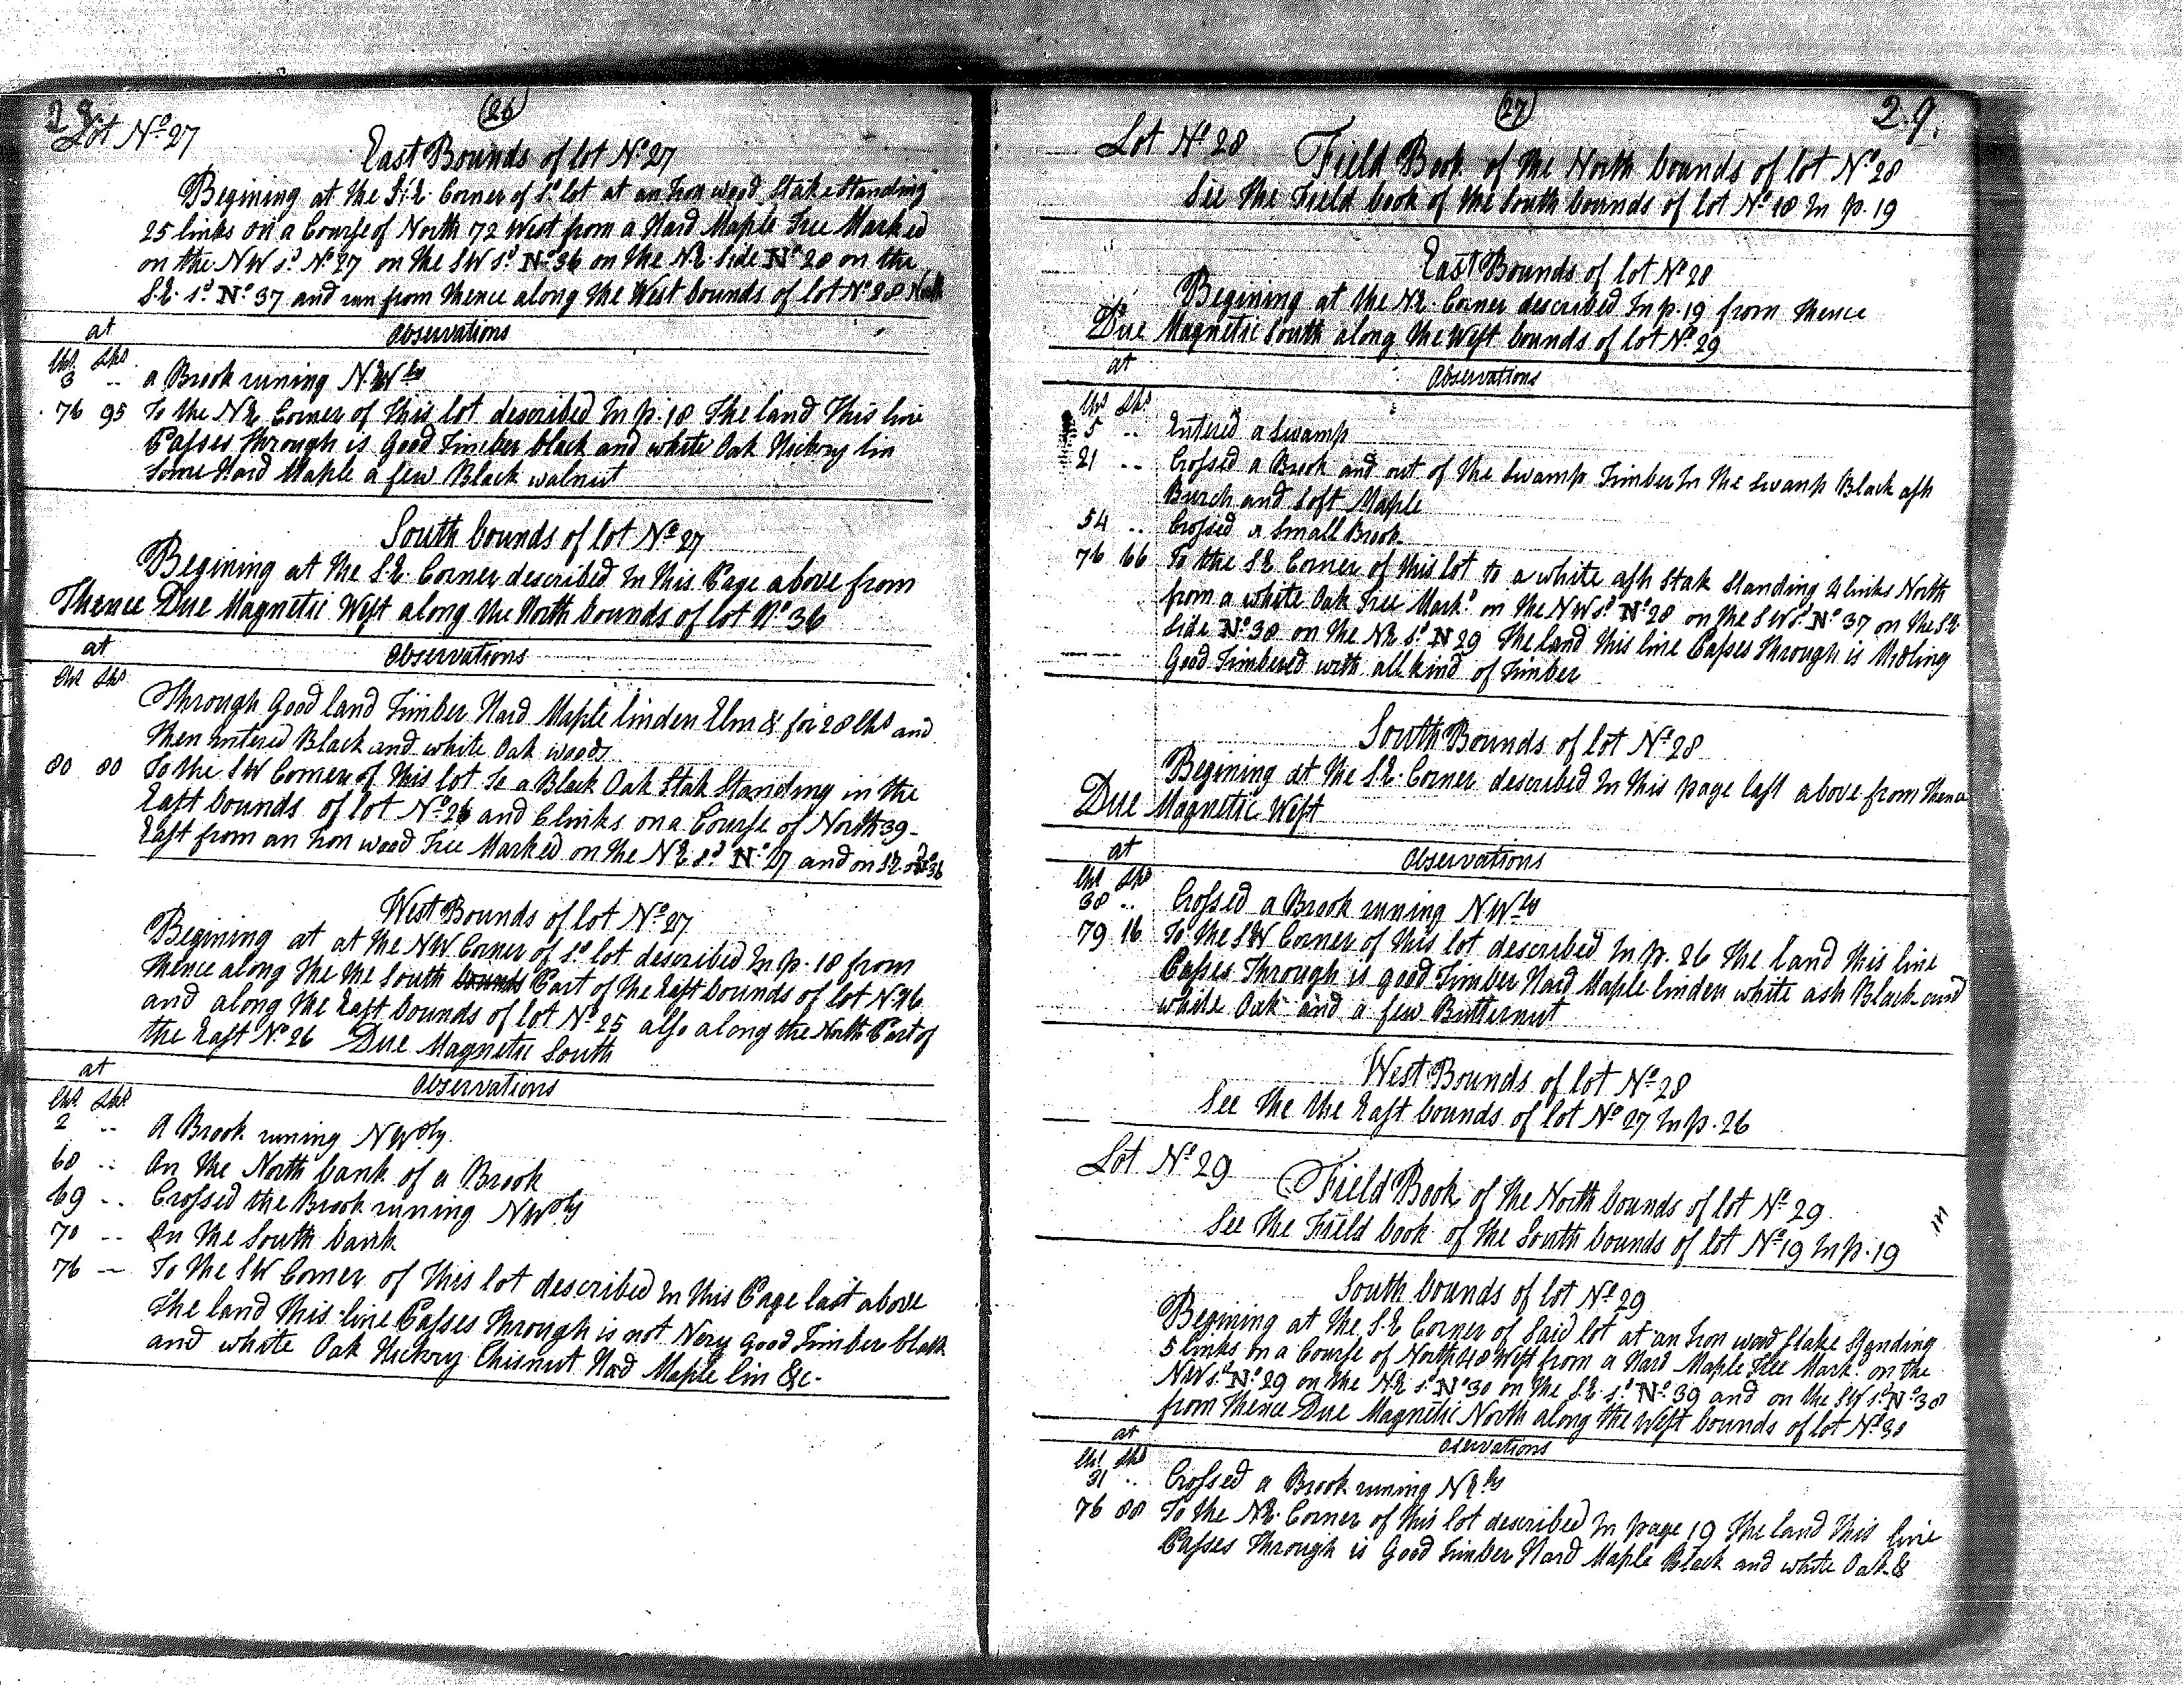 28
(26)
Lot No 27
East Bounds of lot No 27
Begining at the S.E. Corner of sd lot at an Iron wood Stake Standing
25 links on a Course of North 72 West from a Hard Maple Tree Marked
on the NW sd No 27 on the SW sd No 36 on the NE Side No 28 on the
S.E. sd No 37 and run from thence along the West bounds of lot No 28 North
at Observations
Chs Lks
3 .. a Brook runing N.Wly
76 95 To the NE Corner of this lot described In p. 18 The land This line
Passes through is Good Timber black and white Oak Hickory lin
Some Hard Maple a few Black walnut
South bounds of lot No 27
Begining at the S.E. Corner described In this Page above from
Thence Due Magnetic West along the North bounds of lot No 36
at Observations
Chs Lks
Through Good land Timber Hard Maple linden Elm & for 28 Chs and
then entered Black and white Oak woods
80 80 To the SW Corner of this lot To a Black Oak Stak Standing in the
East bounds of lot No 26 and 6 links on a Course of North 39
East from an Iron wood Tree Marked on the NE sd No 27 and on S.E. sd No 36
West Bounds of lot No 27
Begining at at the NW Corner of sd lot described In p. 18 from
thence along the the South bounds Part of the East bounds of lot No 16
and along the East bounds of lot No 25 also along the North Part of
the East No 26 Due Magnetic South
at Observations
Chs Lks
2 .. A Brook runing NWoly
60 .. On the North bank of a Brook
69 .. Crossed the Brook runing NWoly
70 .. On the South bank
76 — To the SW Corner of this lot described In this Page last above
The land this line Passes through is not Very good Timber black
and white Oak Hickory Chisnut Had Maple lin &c.
(27)
29.
Lot No 28 Field Book of the North bounds of lot No 28
See the Field book of the South bounds of lot No 18 In p. 19
East Bounds of lot No 28
Begining at the NE. Corner described In p. 19 from thence
Due Magnetic South along the West bounds of lot No 29
at Observations
Chs Lks
5 .. Entered a Swamp
21 .. Crossed a Brook and out of the Swamp Timber In the Swamp Black ash
Burch and Soft Maple
54 .. Crossed a Small Brook
76 66 To the SE Corner of this lot to a white ash Stak Standing 2 links North
from a white Oak Tree Markd on the NW sd No 28 on the SW sd No 37 on the SE
Side No 38 on the NE sd N 29 The land this line Passes through is Midling
Good Timbered with all kind of Timber
South Bounds of lot No 28
Begining at the S.E. Corner described In this page last above from thence
Due Magnetic West
at Observations
Chs Lks
38 .. Crossed a Brook runing NWly
79 16 To the SW Corner of this lot described In p. 26 The land this line
Passes Through is good Timber Hard Maple linden white ash Black and
white Oak and a few Butternut
West Bounds of lot No 28
See the the East bounds of lot No 27 In p. 26
Lot No 29 Field Book of the North bounds of lot No 29
See the Field book of the South bounds of lot No 19 In p. 19
South bounds of lot No 29
Begining at the S.E Corner of Said lot at an Iron wood Stake Standing
5 links on a Course of North 48 West from a Hard Maple Tree Mark. on the
NW sd No 29 on the NE sd No 30 on the S.E. sd No 39 and on the SW sd No 38
from thence Due Magnetic North along the West bounds of lot No 30
at Oservations
Chs Lks
31 .. Crossed a Brook runing NEly
76 88 To the NE. Corner of this lot described In page 19 The land this line
Passes Through is Good Timber Hard Maple Black and white Oak &